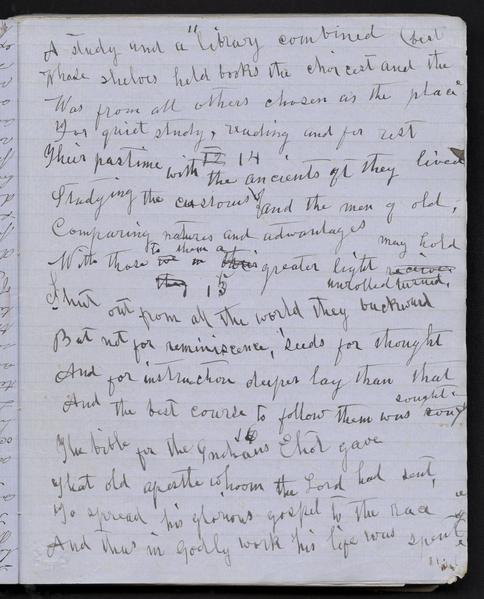 A study and a "library combined (best
Whose shelves held books the choicest and the
Was from all others chosen as the place
For quiet study, reading and for rest
Their pastime with 12 14 the ancients oft they lived
Studying the customs and the men of old,
Comparing natures and advantages may hold
With those to them a greater light
they 15 unrolled turned,
Shut out from all the world they backward
But not for reminiscence, seeds for thought
And for instruction deeper lay than that
sought
And the best course to follow them was
16
The bible for the Indians Eliot gave
That old apostle whoom the Lord had sent,
To spread his glorious gospel to the Race
And thus in Godly work his life was spent